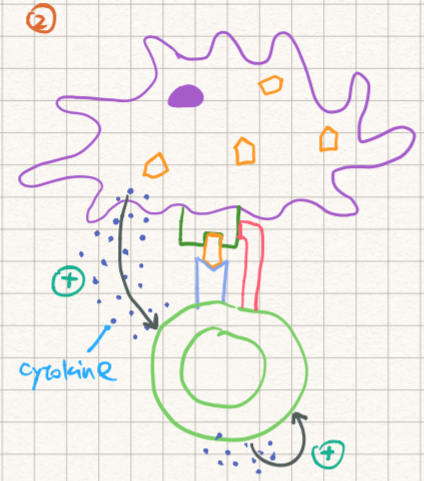 ②
+
cytokine
+